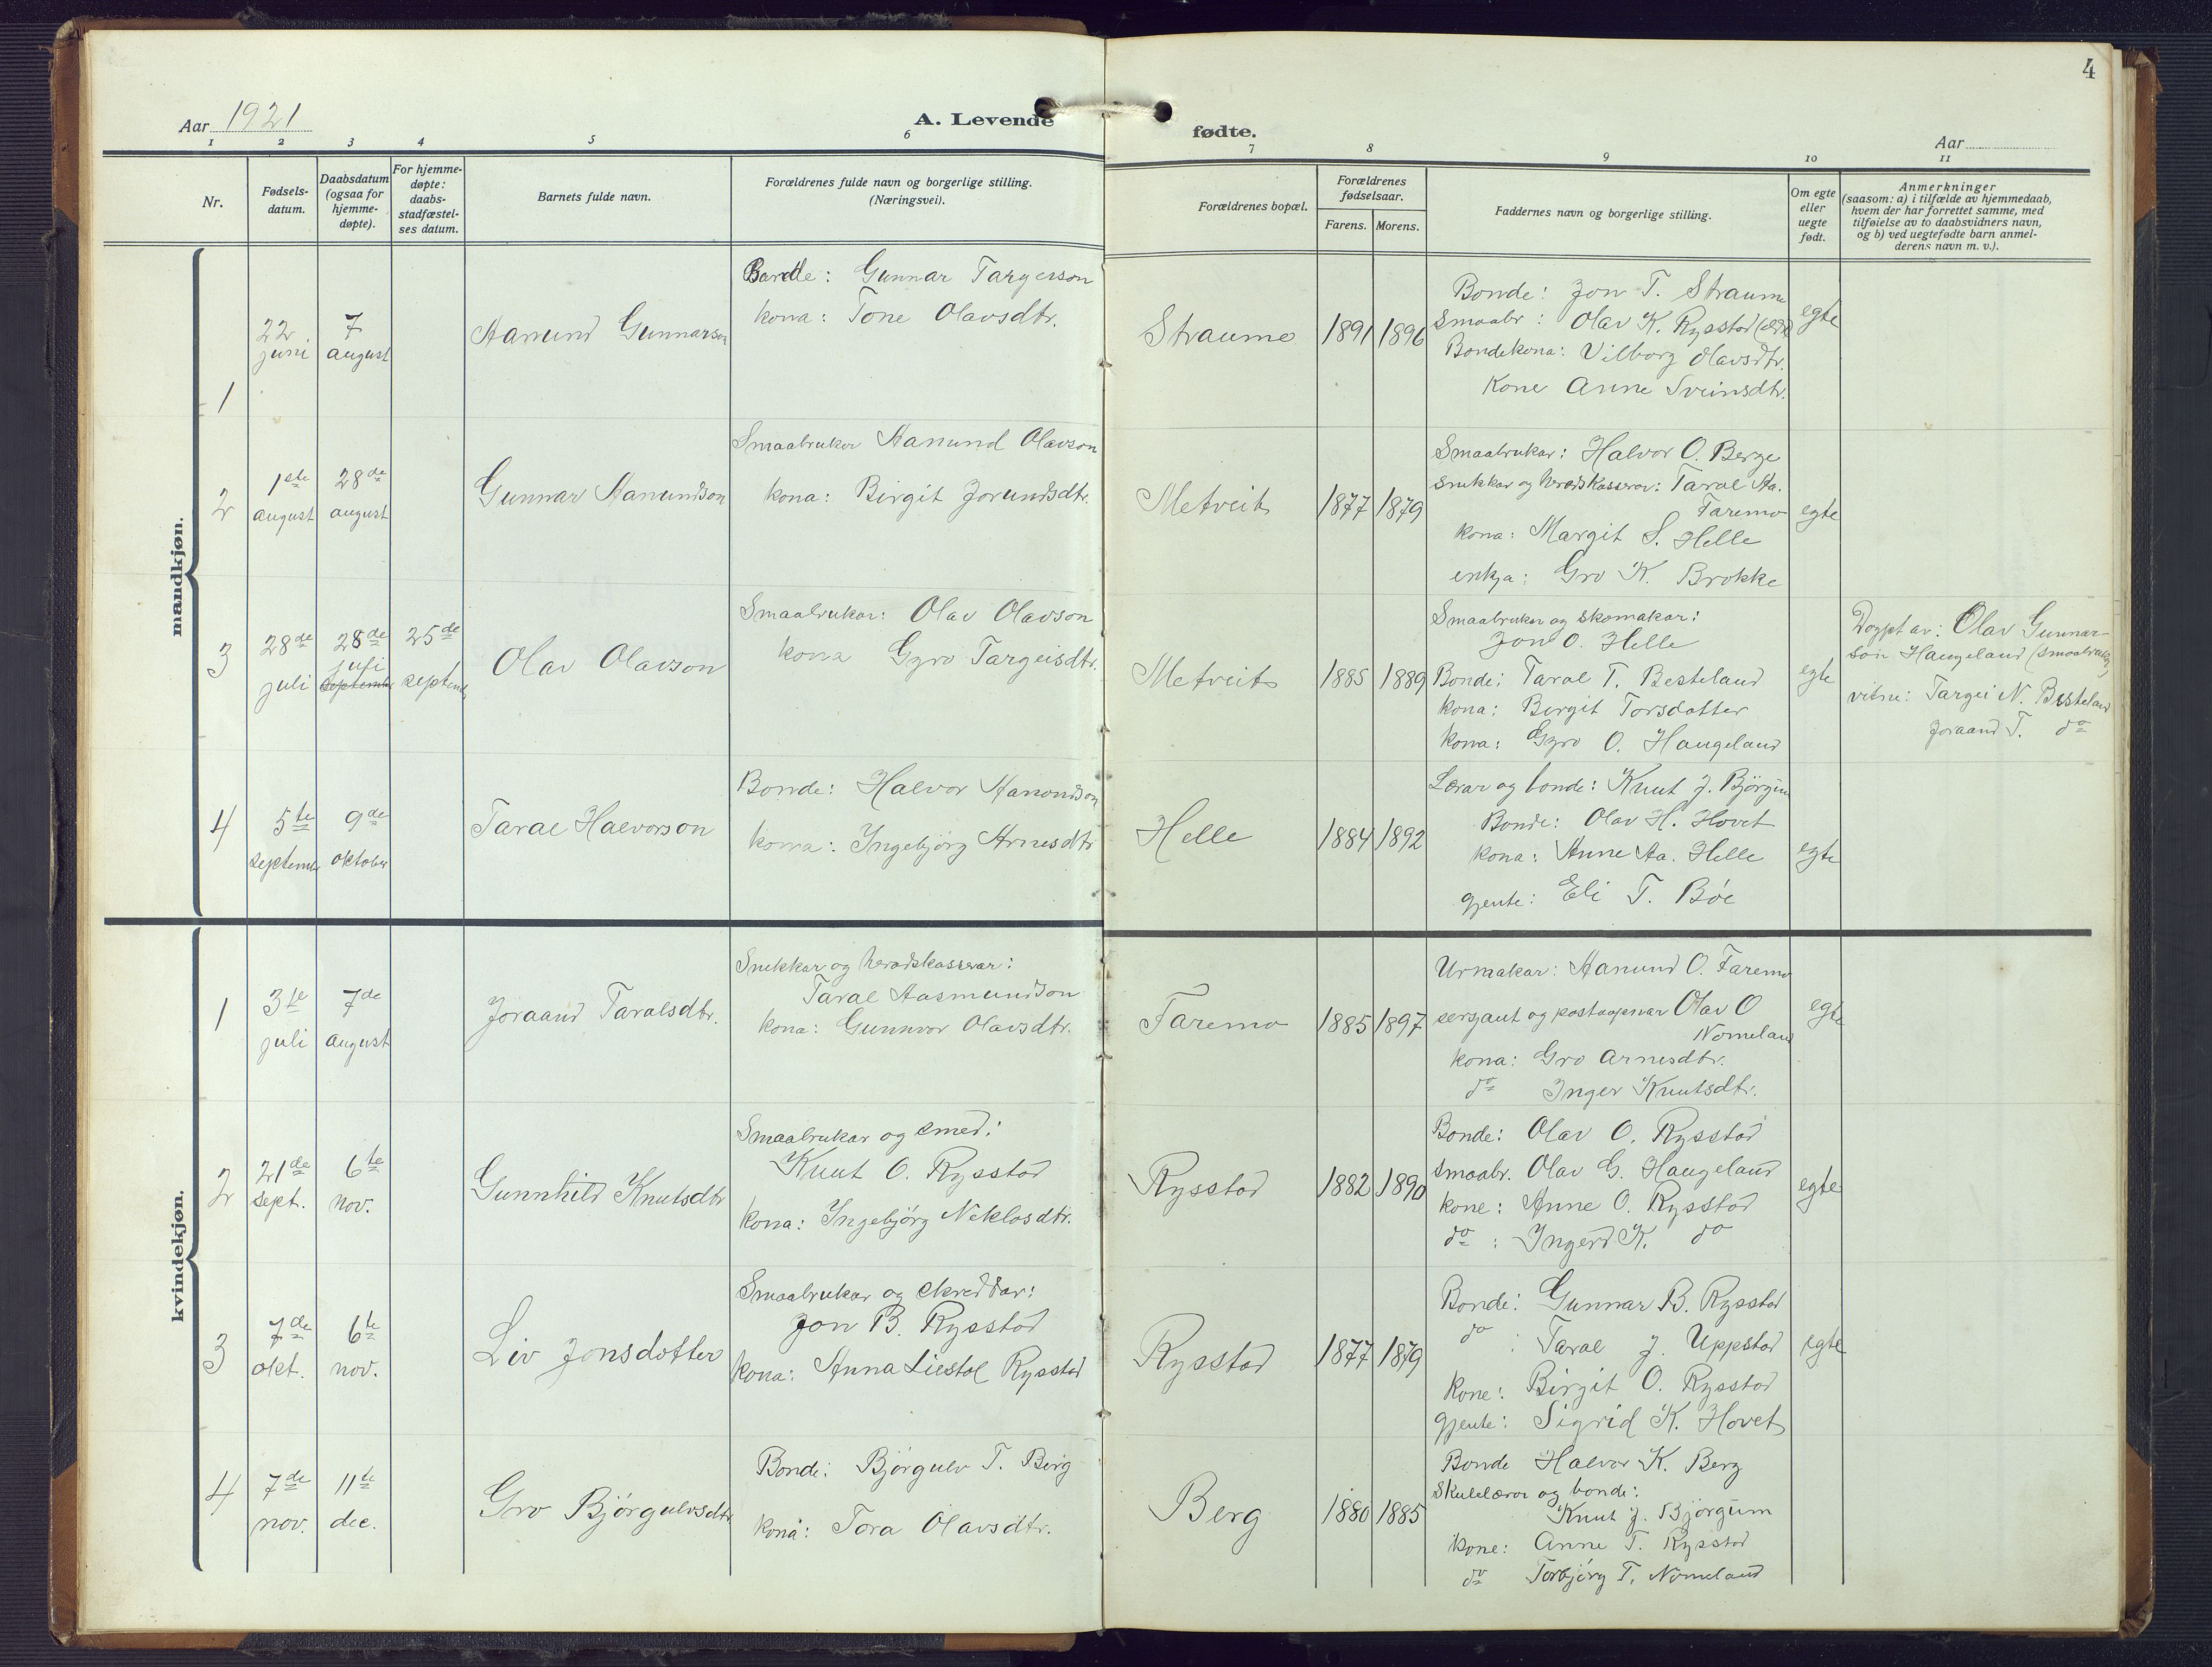 4
Aar 1921
A. Levende fødte.
Aar
1 2 3 4 5 6 7 8 9 10 11
Nr.
Fødsels-
datum.
Daabsdatum
(ogsaa for
hjemme-
døpte).
For hjemme-
døpte:
daabs-
stadfæstel-
ses datum.
Barnets fulde navn.
Forældrenes fulde navn og borgerlige stilling.
(Næringsvei).
Forældrenes bopæl.
Forældrenes
fødselsaar.
Farens. Morens.
Faddernes navn og borgerlige stilling.
Om egte
eller
uegte
født.
Anmerkninger
(saasom: a) i tilfælde av hjemmedaab,
hvem der har forrettet samme, med
tilføielse av to daabsvidners navn,
og b) ved uegtefødte barn anmel-
derens navn m. v.).
mandkjøn.
1
22 juni
7 august
Aanund Gunnarson
Bonde: Gunnar Targeisson
kona: Tone Olavsdtr.
Straume
1891 1896
Bonde: Jon T. Straume
Smaabr: Olav K. Rysstad
Bondekona: Vilborg Olavsdtr.
Kone Anne Sveinsdtr.
egte
2
1ste august
28de august
Gunnar Aanundson
Smaabrukar Aanund Olavson
kona: Birgit Jorundsdtr.
Metveit
1877 1879
Smaabrukar: Halvor O. Berge
Snikkar og heradskasserar: Taral Aa.
Faremo
kona: Margit S. Helle
enkja: Gro K. Brokke
egte
3
28de juli
28de juli
septembr
25de septemb
Olav Olavson
Smaabrukar: Olav Olavson
kona Gyro Targeisdtr.
Metveit
1885 1889
Smaabrukar og skomakar:
Jon O. Helle
Bonde: Taral T. Besteland
kona: Birgit Torsdotter
kona: Gyro O. Haugeland
egte
Døypt av: Olav Gunnar-
son Haugeland (smaabrukar)
vitne: Targei N. Besteland
Joraand T. do
4
5te septembr
9de oktober
Taral Halvorson
Bonde: Halvor Aanondson
kona: Ingebjörg Arnesdtr
Helle
1884 1892
Lærar og bonde: Knut J. Björgum
Bonde: Olav H. Hovet
kona: Anne Aa. Helle
gjente: Eli T. Bøe
egte
kvindekjøn.
1
3te juli
7de august
Joraand Taralsdtr.
Snikkar og heradskasserar:
Taral Aasmundson
kona: Gunnvor Olavsdtr.
Faremo
1885 1897
Urmakar: Aanund O. Faremo
sersjant og postaapnar Olav O
Nomeland
kona: Gro Arnesdtr.
do Inger Knutsdtr.
egte
2
21de sept.
6te nov.
Gunnhild Knutsdtr
Smaabrukar og smed:
Knut O. Rysstad
kona: Ingebjörg Neklosdtr.
Rysstad
1882 1890
Bonde: Olav O. Rysstad
smaabr. Olav G. Haugeland
kone: Anne O. Rysstad
do : Ingerd K. do
egte
3
7de okt.
6te nov.
Liv Jonsdotter
Smaabrukar og skreddar:
Jon B. Rysstad
kona: Anna Liestøl Rysstad
Rysstad
1877 1879
Bonde: Gunnar B. Rysstad
do : Taral J. Uppstad
kone: Birgit O. Rysstad
gjente: Sigrid K. Hovet
egte
4
7de nov.
11te dec.
Gro Bjórgulvsdtr
Bonde: Bjórgulv T. Berg
kona: Tora Olavsdtr.
Berg
1880 1885
Bonde Halvor K. Berg
Skulelærar og bonde:
Knut J. Bjórgum
kone: Anne T. Rysstad
do Torbjórg T. Nomeland